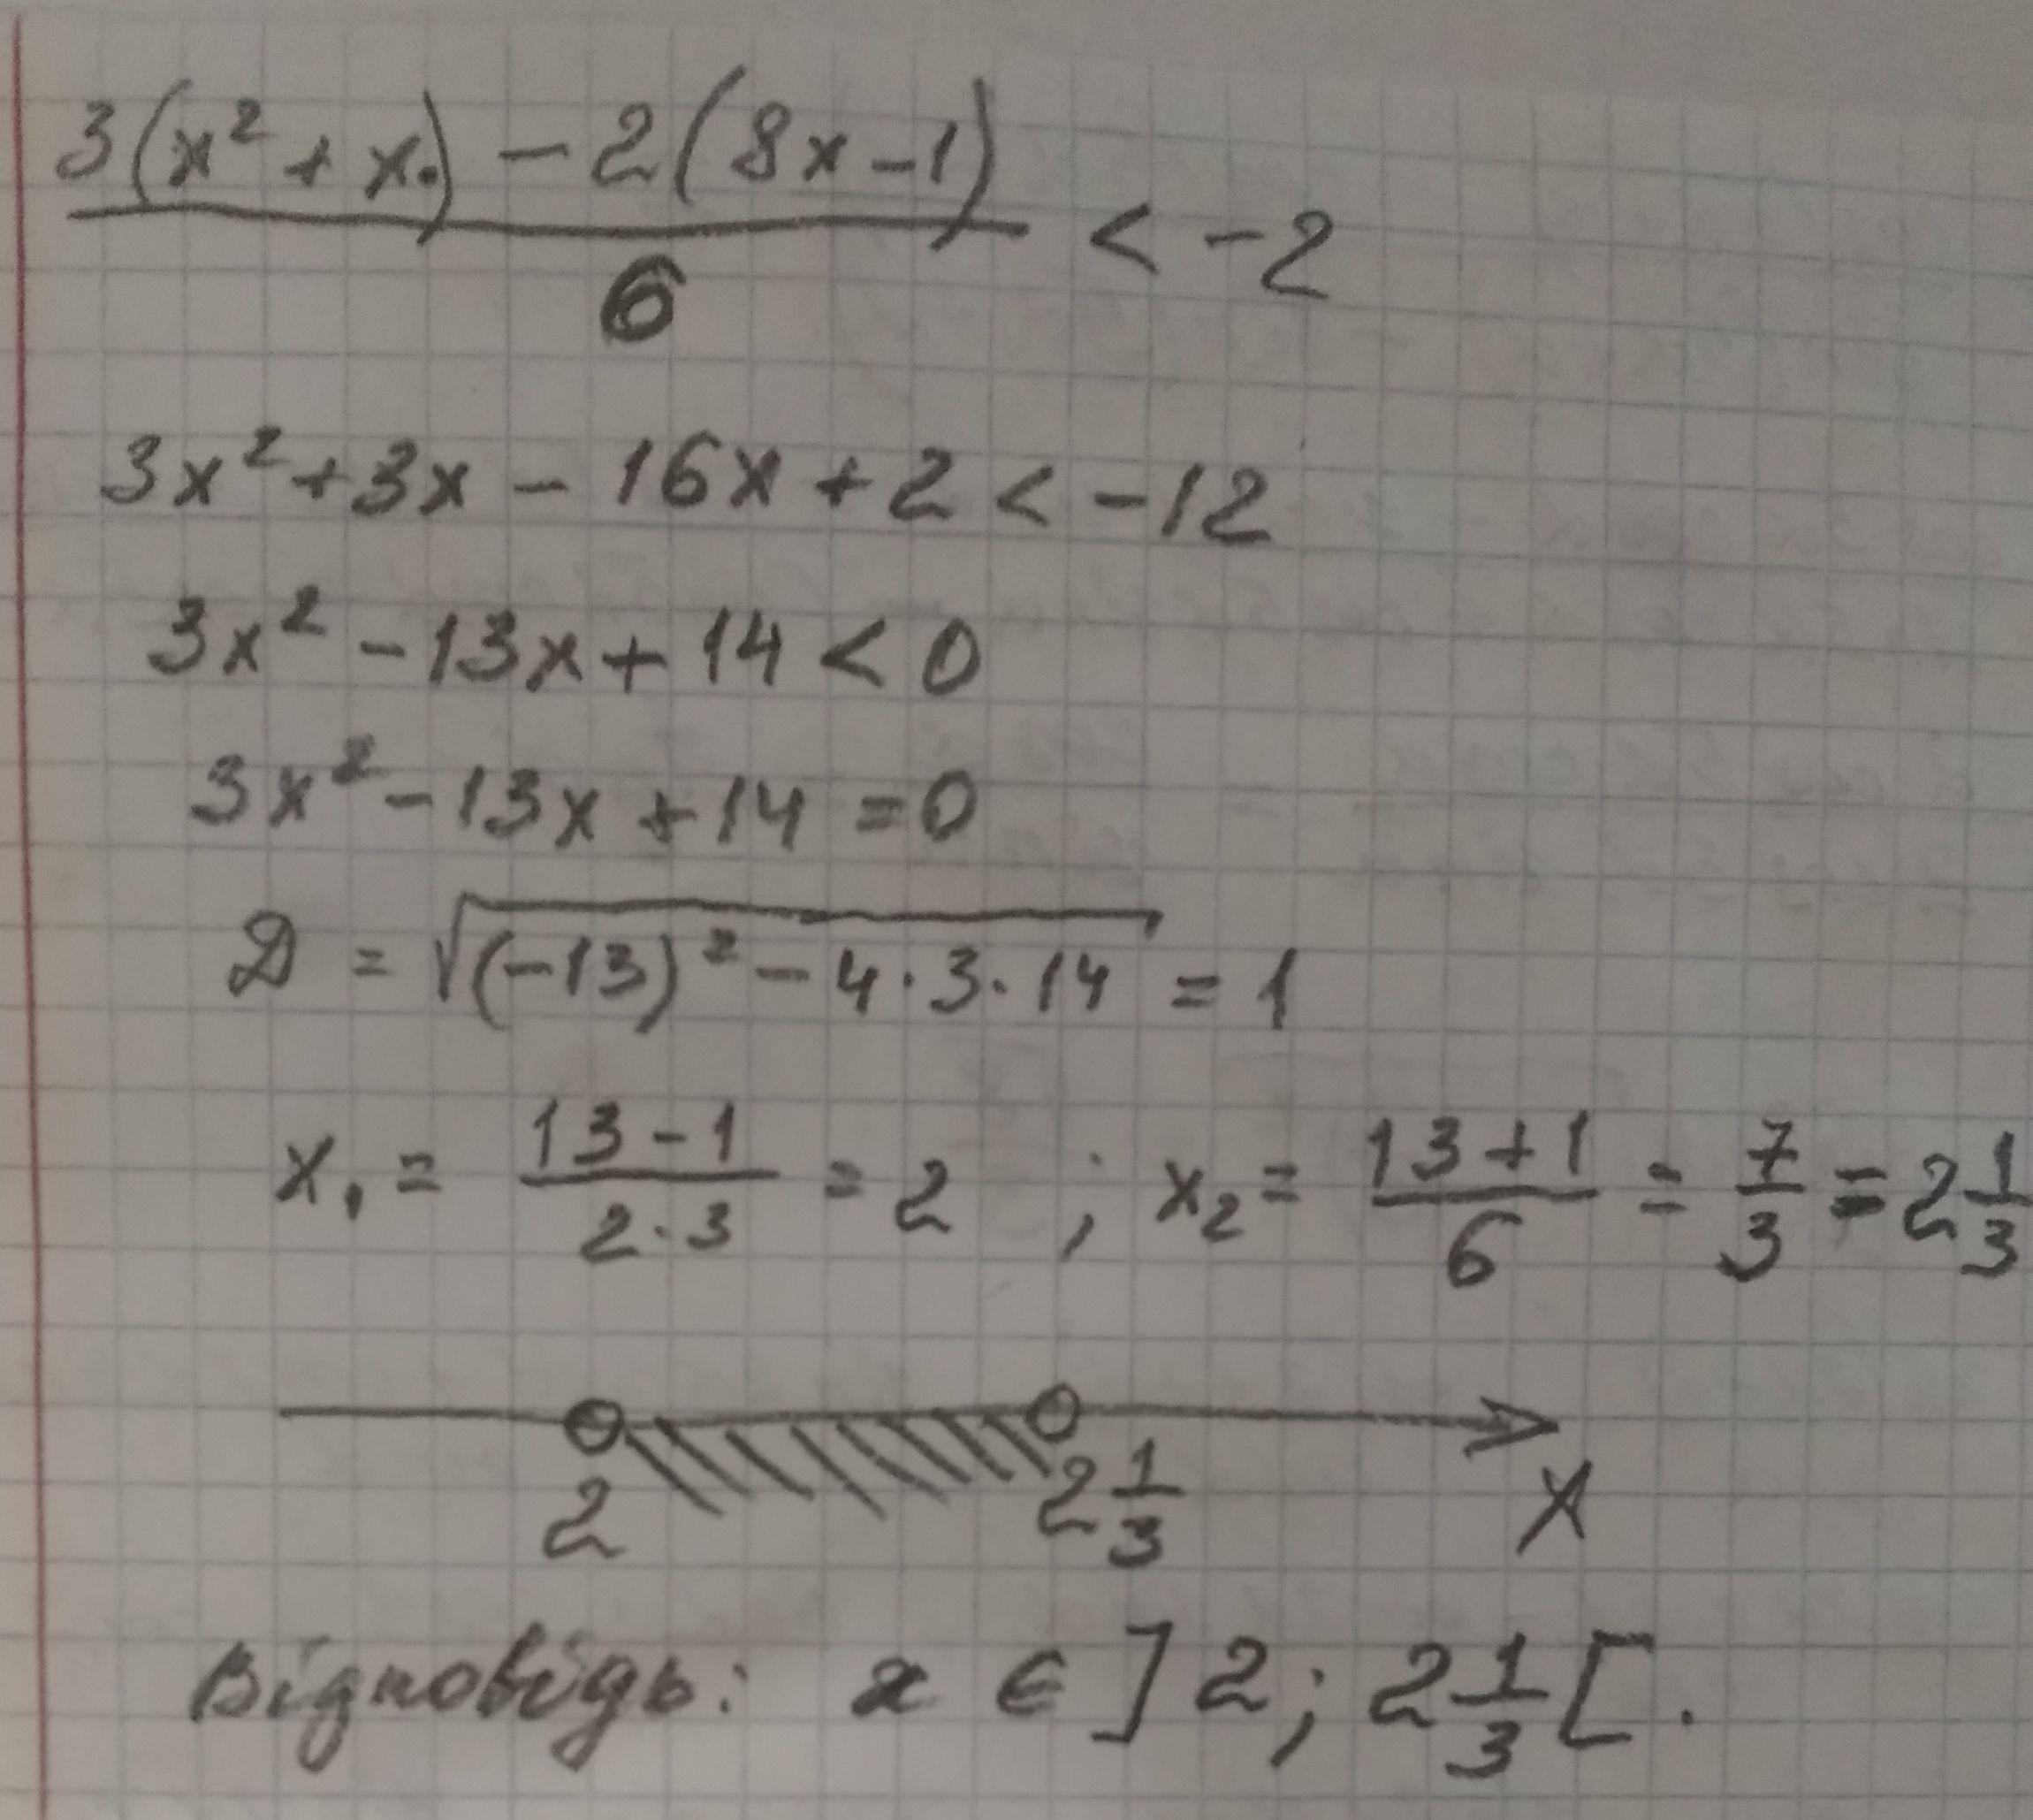 3(x² + x) − 2(8x − 1) / 6 < −2
3x² + 3x − 16x + 2 < −12
3x² − 13x + 14 < 0
3x² − 13x + 14 = 0
D = √((−13)² − 4·3·14) = 1
x₁ = (13 − 1)/(2·3) = 2 ; x₂ = (13 + 1)/6 = 7/3 = 2 1/3
2 2 1/3 x
Відповідь: x ∈ ]2; 2 1/3[.